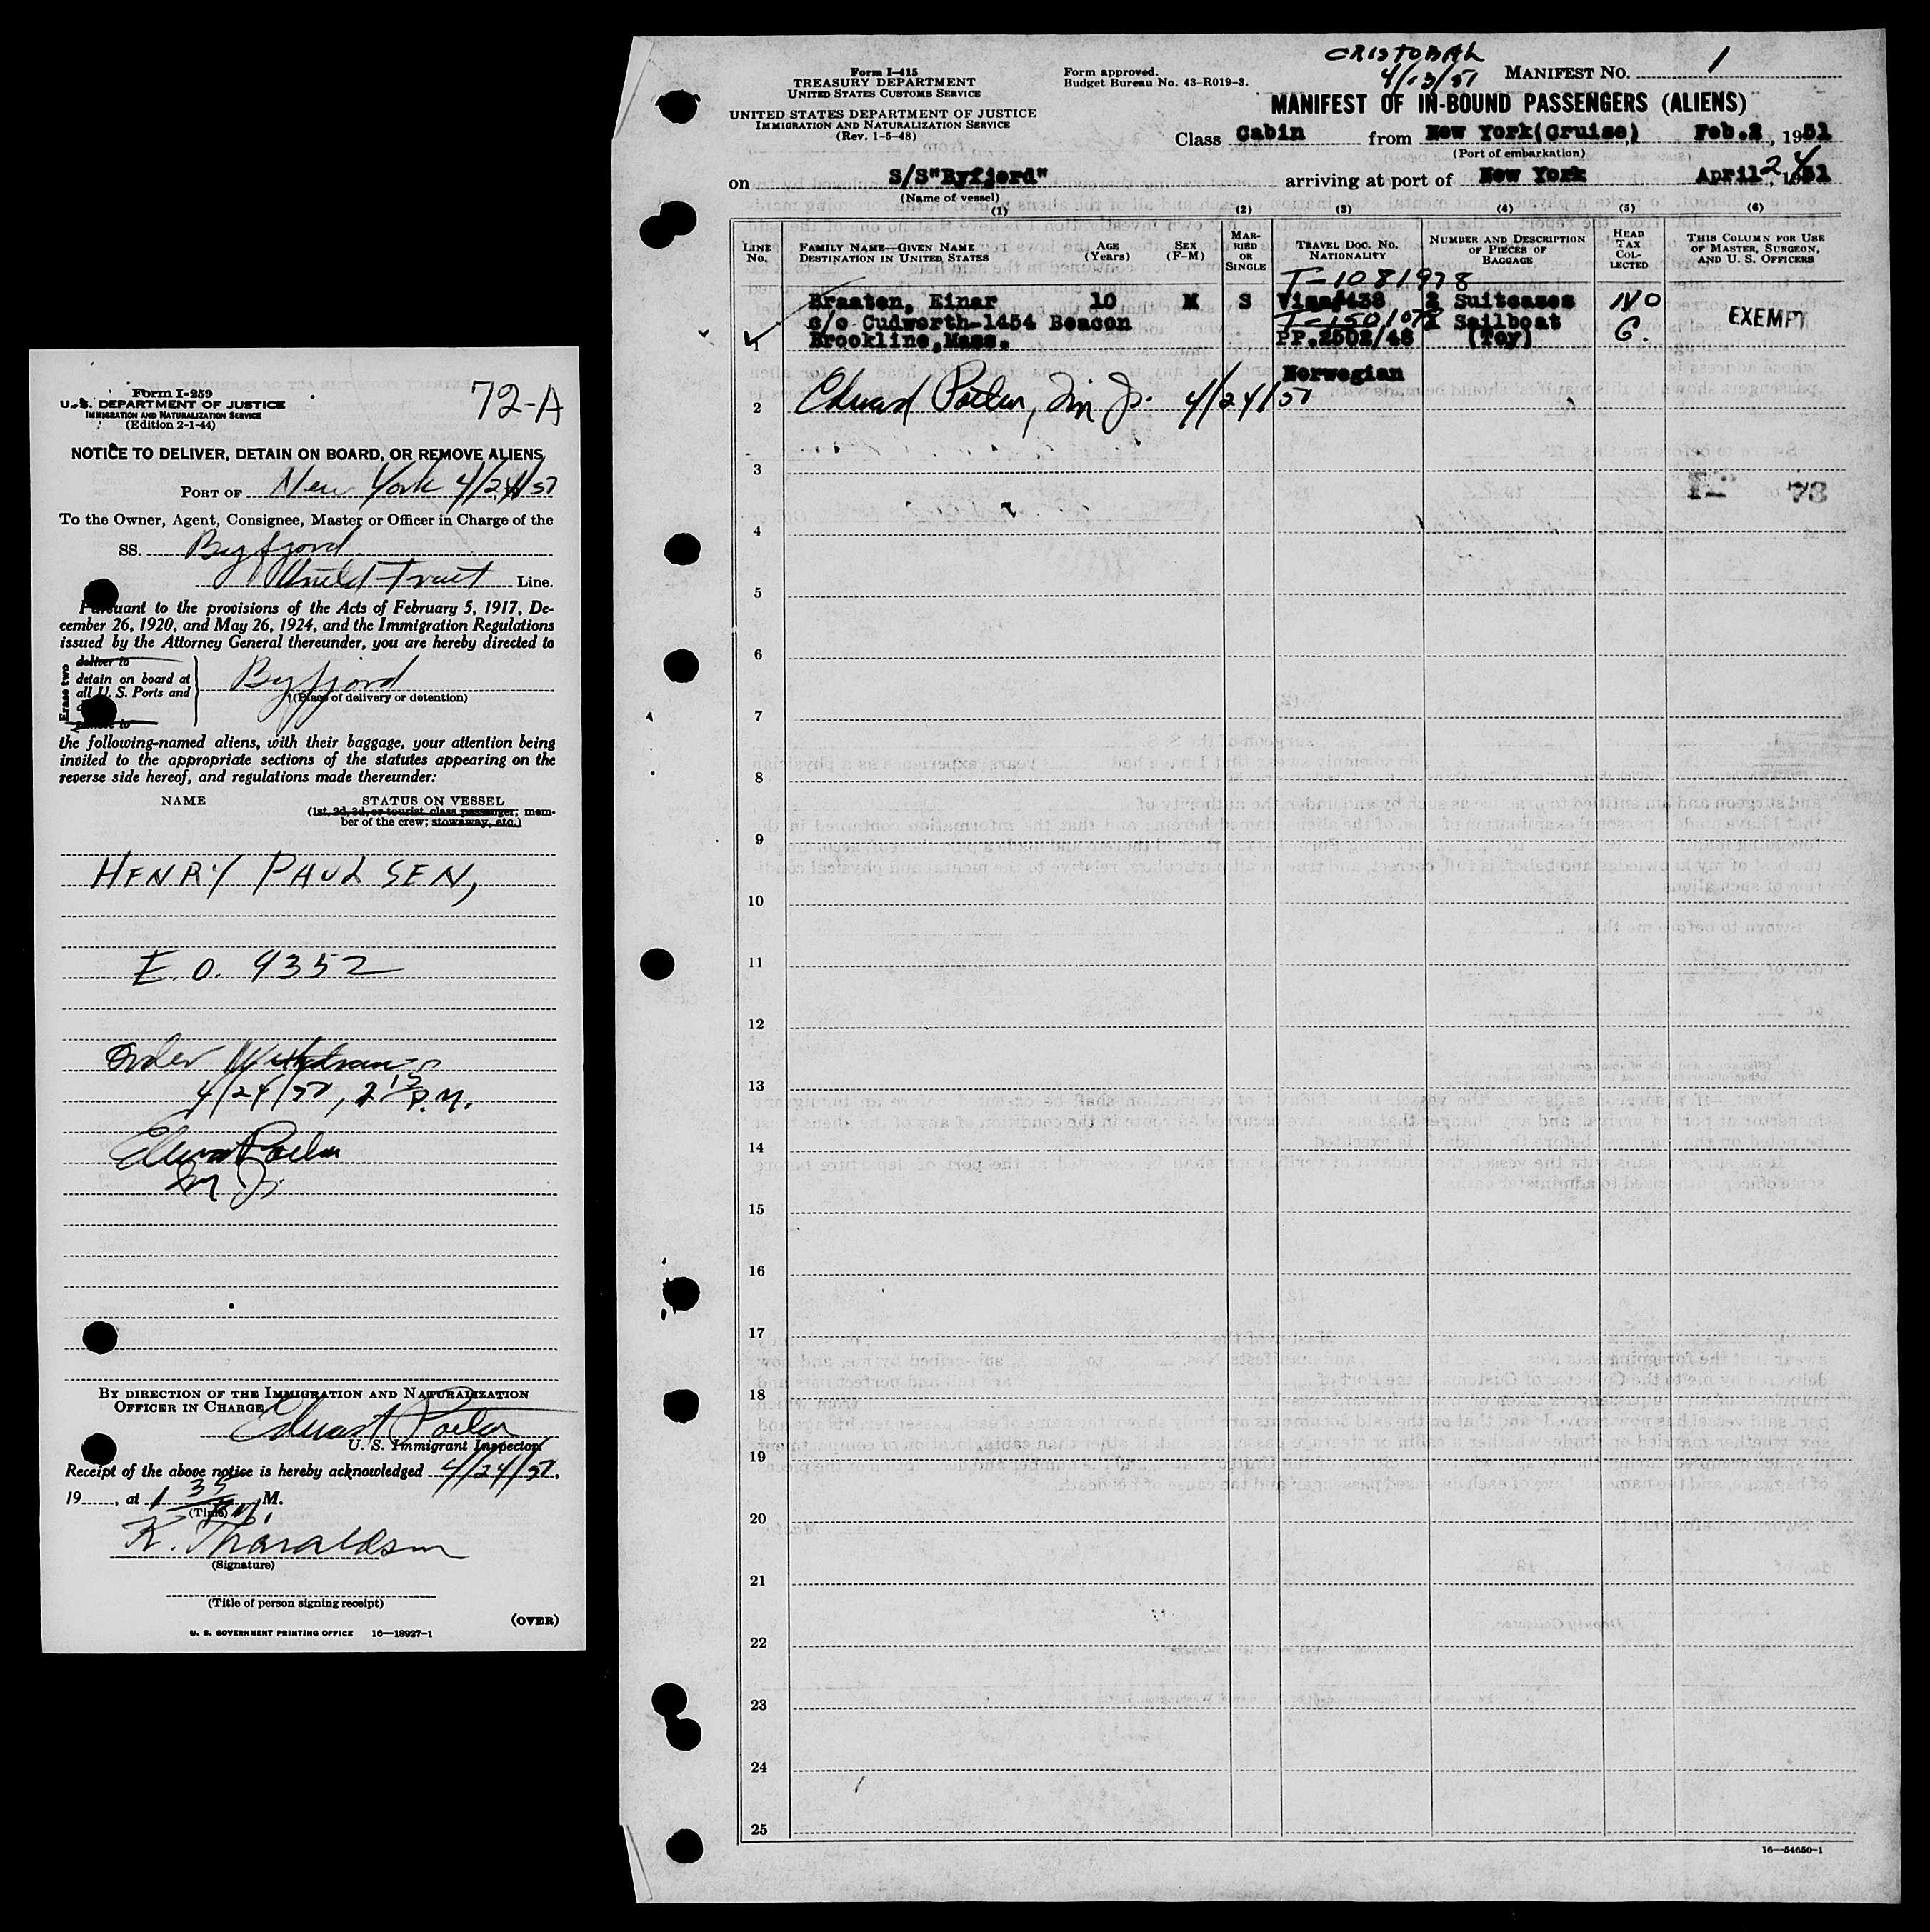 Form I-259
U. S. DEPARTMENT OF JUSTICE
IMMIGRATION AND NATURALIZATION SERVICE
(Edition 2-1-44)
72-A
NOTICE TO DELIVER, DETAIN ON BOARD, OR REMOVE ALIENS
PORT OF New York 4/24/51
To the Owner, Agent, Consignee, Master or Officer in Charge of the
SS. Byfjord
United Fruit Line.
Pursuant to the provisions of the Acts of February 5, 1917, De-
cember 26, 1920, and May 26, 1924, and the Immigration Regulations
issued by the Attorney General thereunder, you are hereby directed to
Erase two
deliver to
detain on board at
all U. S. Ports and
remove to
Byfjord
(Place of delivery or detention)
the following-named aliens, with their baggage, your attention being
invited to the appropriate sections of the statutes appearing on the
reverse side hereof, and regulations made thereunder:
NAME STATUS ON VESSEL
(1st, 2d, 3d, or tourist class passenger; mem-
ber of the crew; stowaway, etc.)
HENRY PAULSEN,
E.O. 9352
Order Withdrawn
4/24/51, 2 15 P.M.
Edward
BY DIRECTION OF THE IMMIGRATION AND NATURALIZATION
OFFICER IN CHARGE
Edward
U. S. Immigrant Inspector.
Receipt of the above notice is hereby acknowledged 4/24/51,
19 , at 1 35 P.M. M.
(Time)
K. Tharaldsen
(Signature)
(Title of person signing receipt)
(OVER)
U. S. GOVERNMENT PRINTING OFFICE 16—18927-1
Form I-415
TREASURY DEPARTMENT
UNITED STATES CUSTOMS SERVICE
UNITED STATES DEPARTMENT OF JUSTICE
IMMIGRATION AND NATURALIZATION SERVICE
(Rev. 1-5-48)
Form approved.
Budget Bureau No. 43-R019-3.
CRISTOBAL
4/13/51
MANIFEST NO. 1
MANIFEST OF IN-BOUND PASSENGERS (ALIENS)
Class Cabin from New York(Cruise) Feb.2, 1951
(Port of embarkation)
on S/S"Byfjord" arriving at port of New York April 24, 1951
(Name of vessel)
(1) (2) (3) (4) (5) (6)
LINE No. FAMILY NAME—GIVEN NAME DESTINATION IN UNITED STATES AGE (Years) SEX (F-M) MARRIED OR SINGLE TRAVEL DOC. NO. NATIONALITY NUMBER AND DESCRIPTION OF PIECES OF BAGGAGE HEAD TAX COLLECTED THIS COLUMN FOR USE OF MASTER, SURGEON, AND U. S. OFFICERS
T-1081978
Braaten, Einar 10 M S Visa#438 2 Suitcases NO
c/o Cudworth-1454 Beacon T-1501072 1 Sailboat C. EXEMPT
1 Brookline,Mass. PP.2502/48 (Toy)
Norwegian
2 Edward 4/24/51
3
73
4
5
6
7
8
9
10
11
12
13
14
15
16
17
18
19
20
21
22
23
24
25
16—54650-1